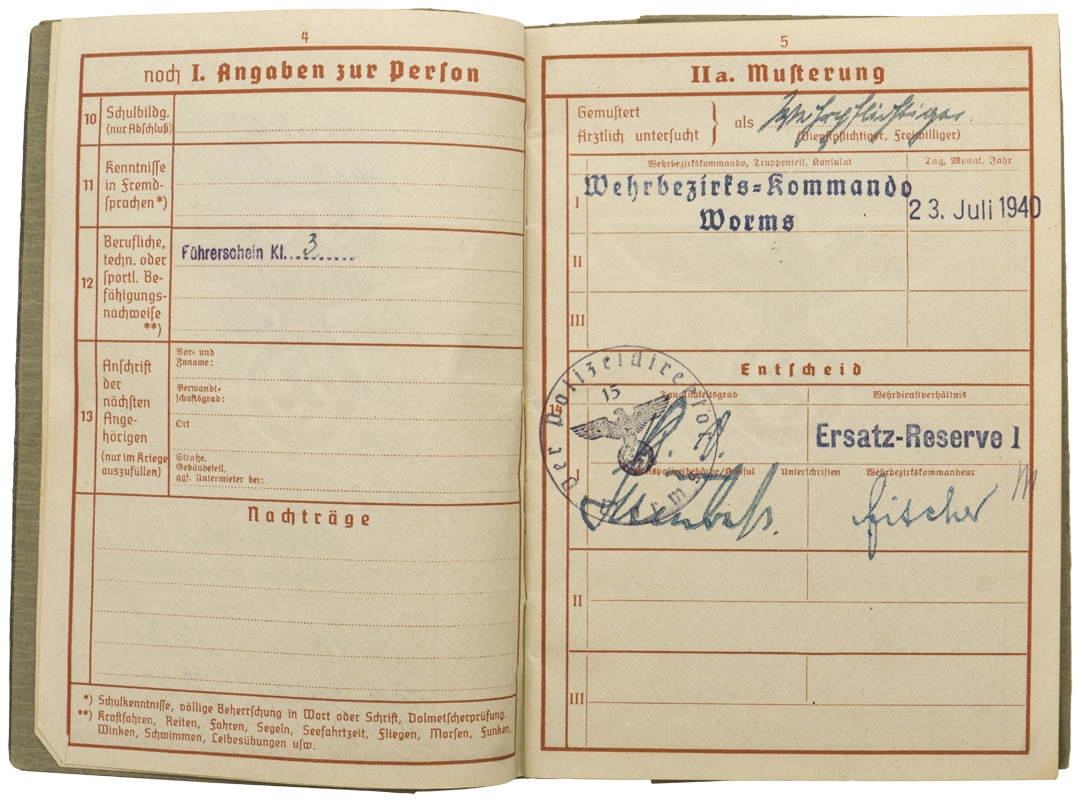 4
noch I. Angaben zur Person
10 Schulbildg.
(nur Abschluß)
11 Kenntnisse
in Fremd-
sprachen*)
12 Berufliche,
techn. oder
sportl. Be-
fähigungs-
nachweise
**)
Führerschein Kl. 3
13 Anschrift
der
nächsten
Ange-
hörigen
(nur im Kriege
auszufüllen)
Vor- und
Zuname:
Verwandt-
schaftsgrad:
Ort
Straße,
Gebäudeteil,
ggf. Untermieter bei:
Nachträge
*) Schulkenntnisse, völlige Beherrschung in Wort oder Schrift, Dolmetscherprüfung.
**) Kraftfahren, Reiten, Fahren, Segeln, Seefahrtzeit, Fliegen, Morsen, Funken,
Winken, Schwimmen, Leibesübungen usw.
5
IIa. Musterung
Gemustert
Ärztlich untersucht } als Wehrpflichtiger
(Dienstpflichtiger, Freiwilliger)
Wehrbezirkskommando, Truppenteil, Konsulat Tag, Monat, Jahr
I Wehrbezirks=Kommando
Worms 23. Juli 1940
II
III
Entscheid
Tauglichkeitsgrad Wehrdienstverhältnis
Der Polizeidirektor
15
Ersatz-Reserve 1
I
Kreispolizeibehörde/Konsul Unterschriften Wehrbezirkskommandeur
Fischer
II
III